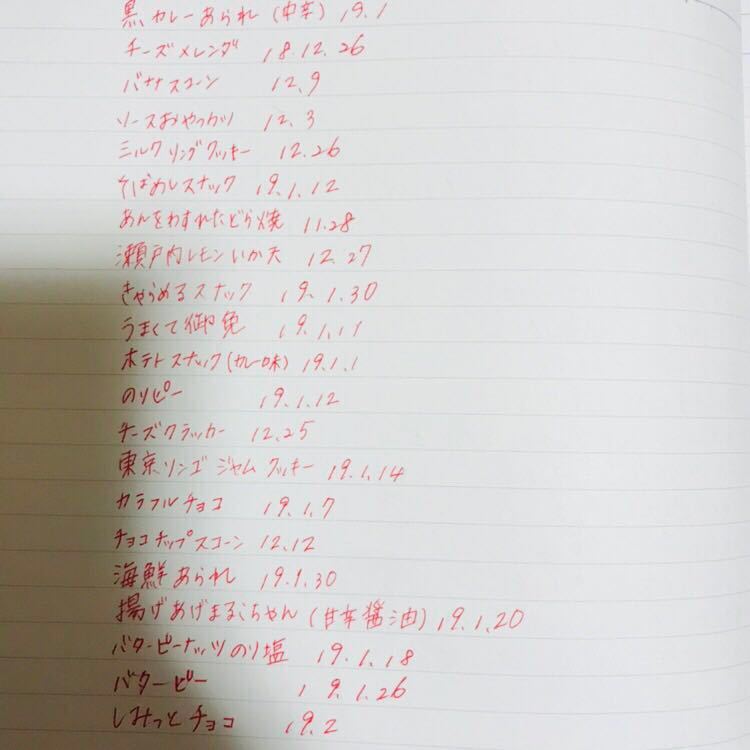 黒カレーあられ(中辛) 19.1
チーズメレンダ 18.12.26
バナナスコーン 12.9
ソースおやつカツ 12.3
ミルクリングクッキー 12.26
そばめしスナック 19.1.12
あんをわすれたどら焼 11.28
瀬戸内レモンいか天 12.27
きゃらめるスナック 19.1.30
うまくて御免 19.1.11
ポテトスナック(カレー味) 19.1.1
のりピー 19.1.12
チーズクラッカー 12.25
東京リンゴジャムクッキー 19.1.14
カラフルチョコ 19.1.7
チョコチップスコーン 12.12
海鮮あられ 19.1.30
揚げあげまるちゃん(甘辛醤油) 19.1.20
バターピーナッツのり塩 19.1.18
バターピー 19.1.26
しみっとチョコ 19.2